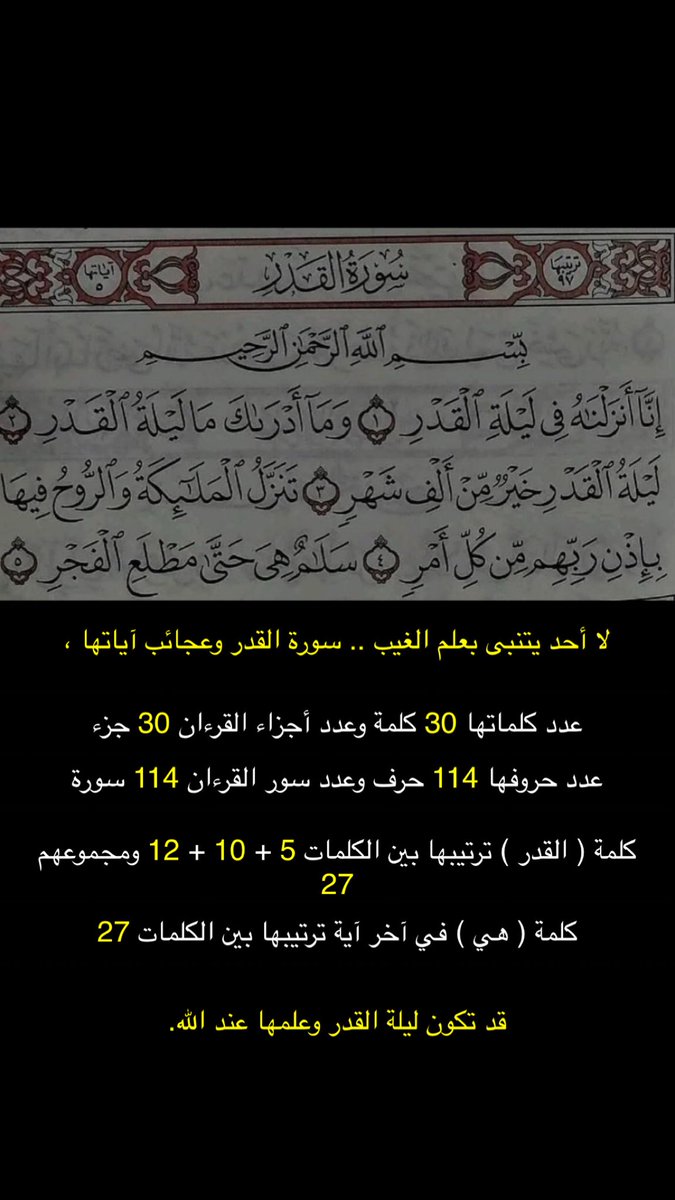 ترتيبها ٩٧
سُورَةُ القَدْرِ
آياتها ٥
بِسْمِ ٱللَّهِ ٱلرَّحْمَٰنِ ٱلرَّحِيمِ
إِنَّآ أَنزَلْنَٰهُ فِى لَيْلَةِ ٱلْقَدْرِ ١ وَمَآ أَدْرَىٰكَ مَا لَيْلَةُ ٱلْقَدْرِ ٢
لَيْلَةُ ٱلْقَدْرِ خَيْرٌ مِّنْ أَلْفِ شَهْرٍ ٣ تَنَزَّلُ ٱلْمَلَٰٓئِكَةُ وَٱلرُّوحُ فِيهَا
بِإِذْنِ رَبِّهِم مِّن كُلِّ أَمْرٍ ٤ سَلَٰمٌ هِىَ حَتَّىٰ مَطْلَعِ ٱلْفَجْرِ ٥
لا أحد يتنبى بعلم الغيب .. سورة القدر وعجائب آياتها ،
عدد كلماتها 30 كلمة وعدد أجزاء القرءان 30 جزء
عدد حروفها 114 حرف وعدد سور القرءان 114 سورة
كلمة ( القدر ) ترتيبها بين الكلمات 5 + 10 + 12 ومجموعهم
27
كلمة ( هي ) في آخر آية ترتيبها بين الكلمات 27
قد تكون ليلة القدر وعلمها عند الله.